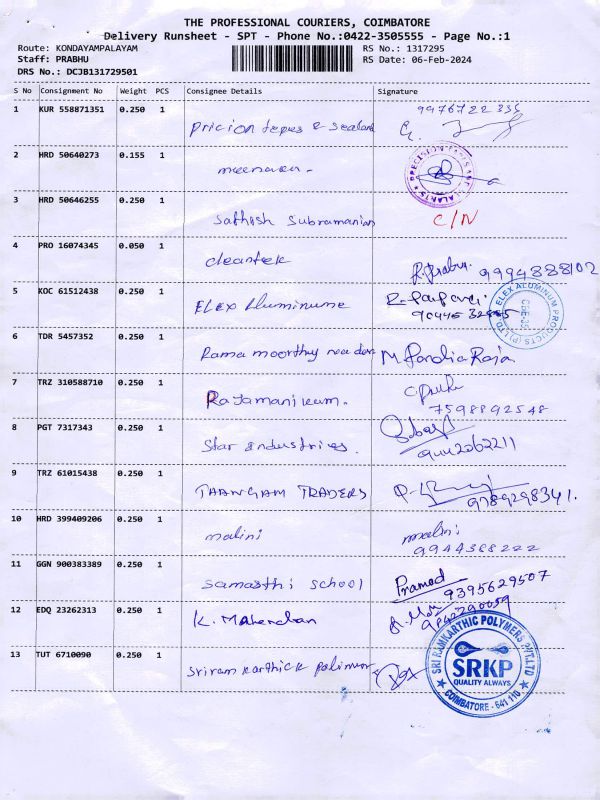 THE PROFESSIONAL COURIERS, COIMBATORE
Delivery Runsheet - SPT - Phone No.:0422-3505555 - Page No.:1
Route: KONDAYAMPALAYAM RS No.: 1317295
Staff: PRABHU RS Date: 06-Feb-2024
DRS No.: DCJB131729501
S No Consignment No Weight PCS Consignee Details Signature
1 KUR 558871351 0.250 1 Pricion tapes & sealant 9976722335
2 HRD 50640273 0.155 1 meenaxa.
3 HRD 50646255 0.250 1 Sathish Subramanian C/N
4 PRO 16074345 0.050 1 cleantek R. Prabu. 9994888102
5 KOC 61512438 0.250 1 ELEX Aluminume
ELEX ALUMINUM PRODUCTS (P) LTD
CBE-35
6 TDR 5457352 0.250 1 Rama moorthy M Pandia Raja
7 TRZ 310588710 0.250 1 Rajamanikam.
7598892548
8 PGT 7317343 0.250 1 Star industries.
9 TRZ 61015438 0.250 1 THANGAM TRADERS
9789298341.
10 HRD 399409206 0.250 1 malini malini
9944388222
11 GGN 900383389 0.250 1 Samasthi School Pramod
9395629507
12 EDQ 23262313 0.250 1 K. Mahendran
13 TUT 6710090 0.250 1 Sriram karthick polimer
SRI RAMKARTHIC POLYMERS PVT.LTD
SRKP
QUALITY ALWAYS
COIMBATORE - 641 110